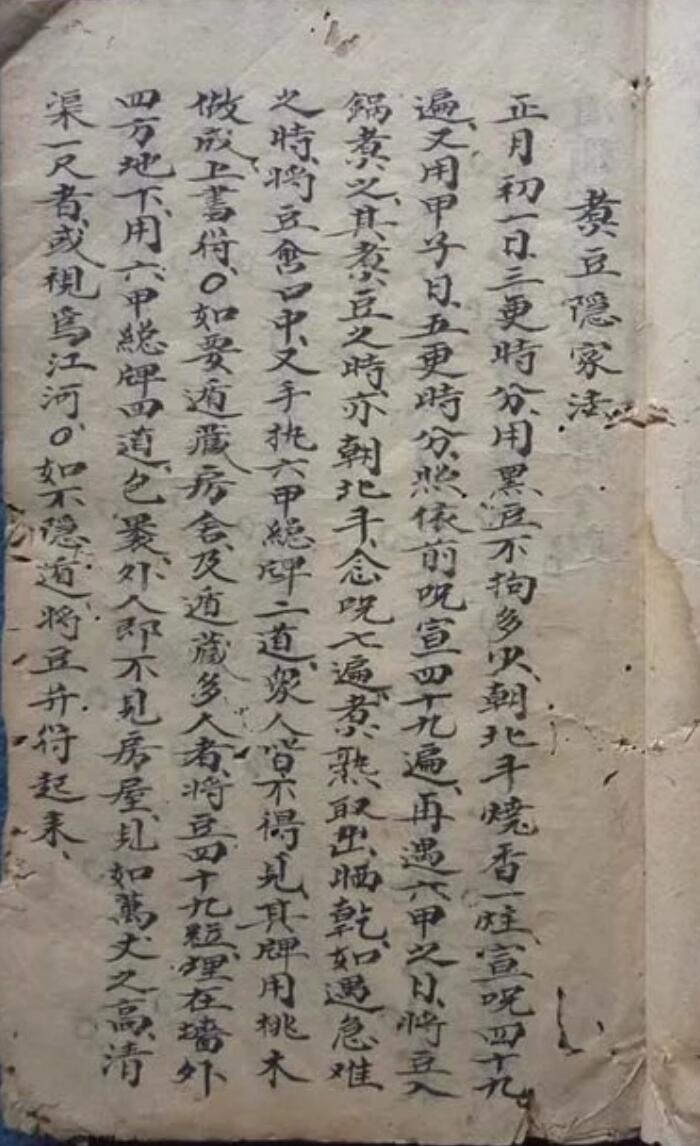 煑豆隱家法
正月初一日、三更時分、用黑豆不拘多少、朝北斗燒香一炷、宣呪四十九
遍、又用甲子日、五更時分、照依前呪宣四十九遍、再遇六甲之日、將豆入
鍋煑之、其煑豆之時、亦朝北斗、念呪七遍、煑熟取出、晒乾、如遇急难
之時、將豆含口中、又手执六甲總牌二道、眾人皆不得見、其牌用桃木
做成上書符、○如要遁藏房舍、及遁藏多人者、將豆四十九粒、埋在墻外
四方地下、用六甲總牌四道、包裹、外人即不見房屋、見如萬丈之高、清
渠一尺者、或視爲江河○如不隱遁、將豆并符起来、